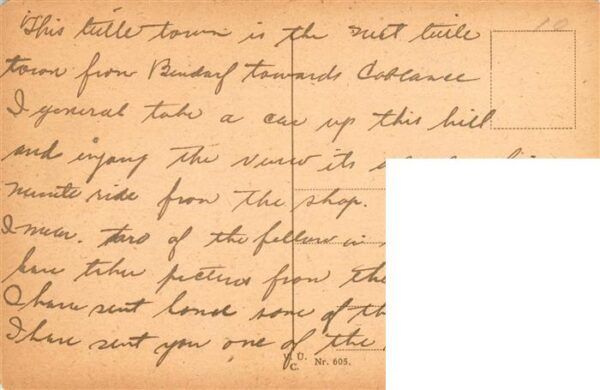 This little town is the next little
town from Bendorf towards Coblance
I general take a car up this hill
and enjoy the view its
minute ride from the shop.
I mean. two of the fellow in
have taken pictures from the
I have sent some of th
I have sent you one of the
U.
C. Nr. 605.